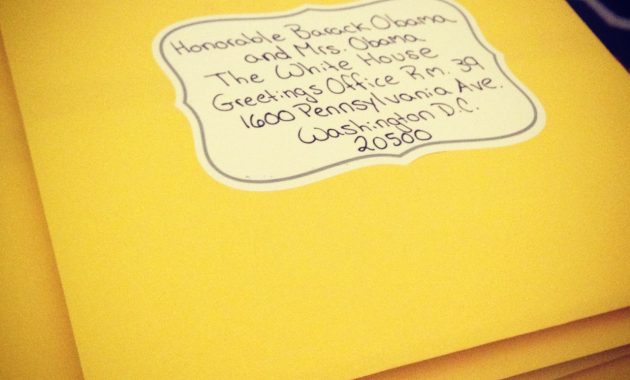 Honorable Barack Obama
and Mrs. Obama
The White House
Greetings Office Rm. 39
1600 Pennsylvania Ave.
Washington D.C.
20500